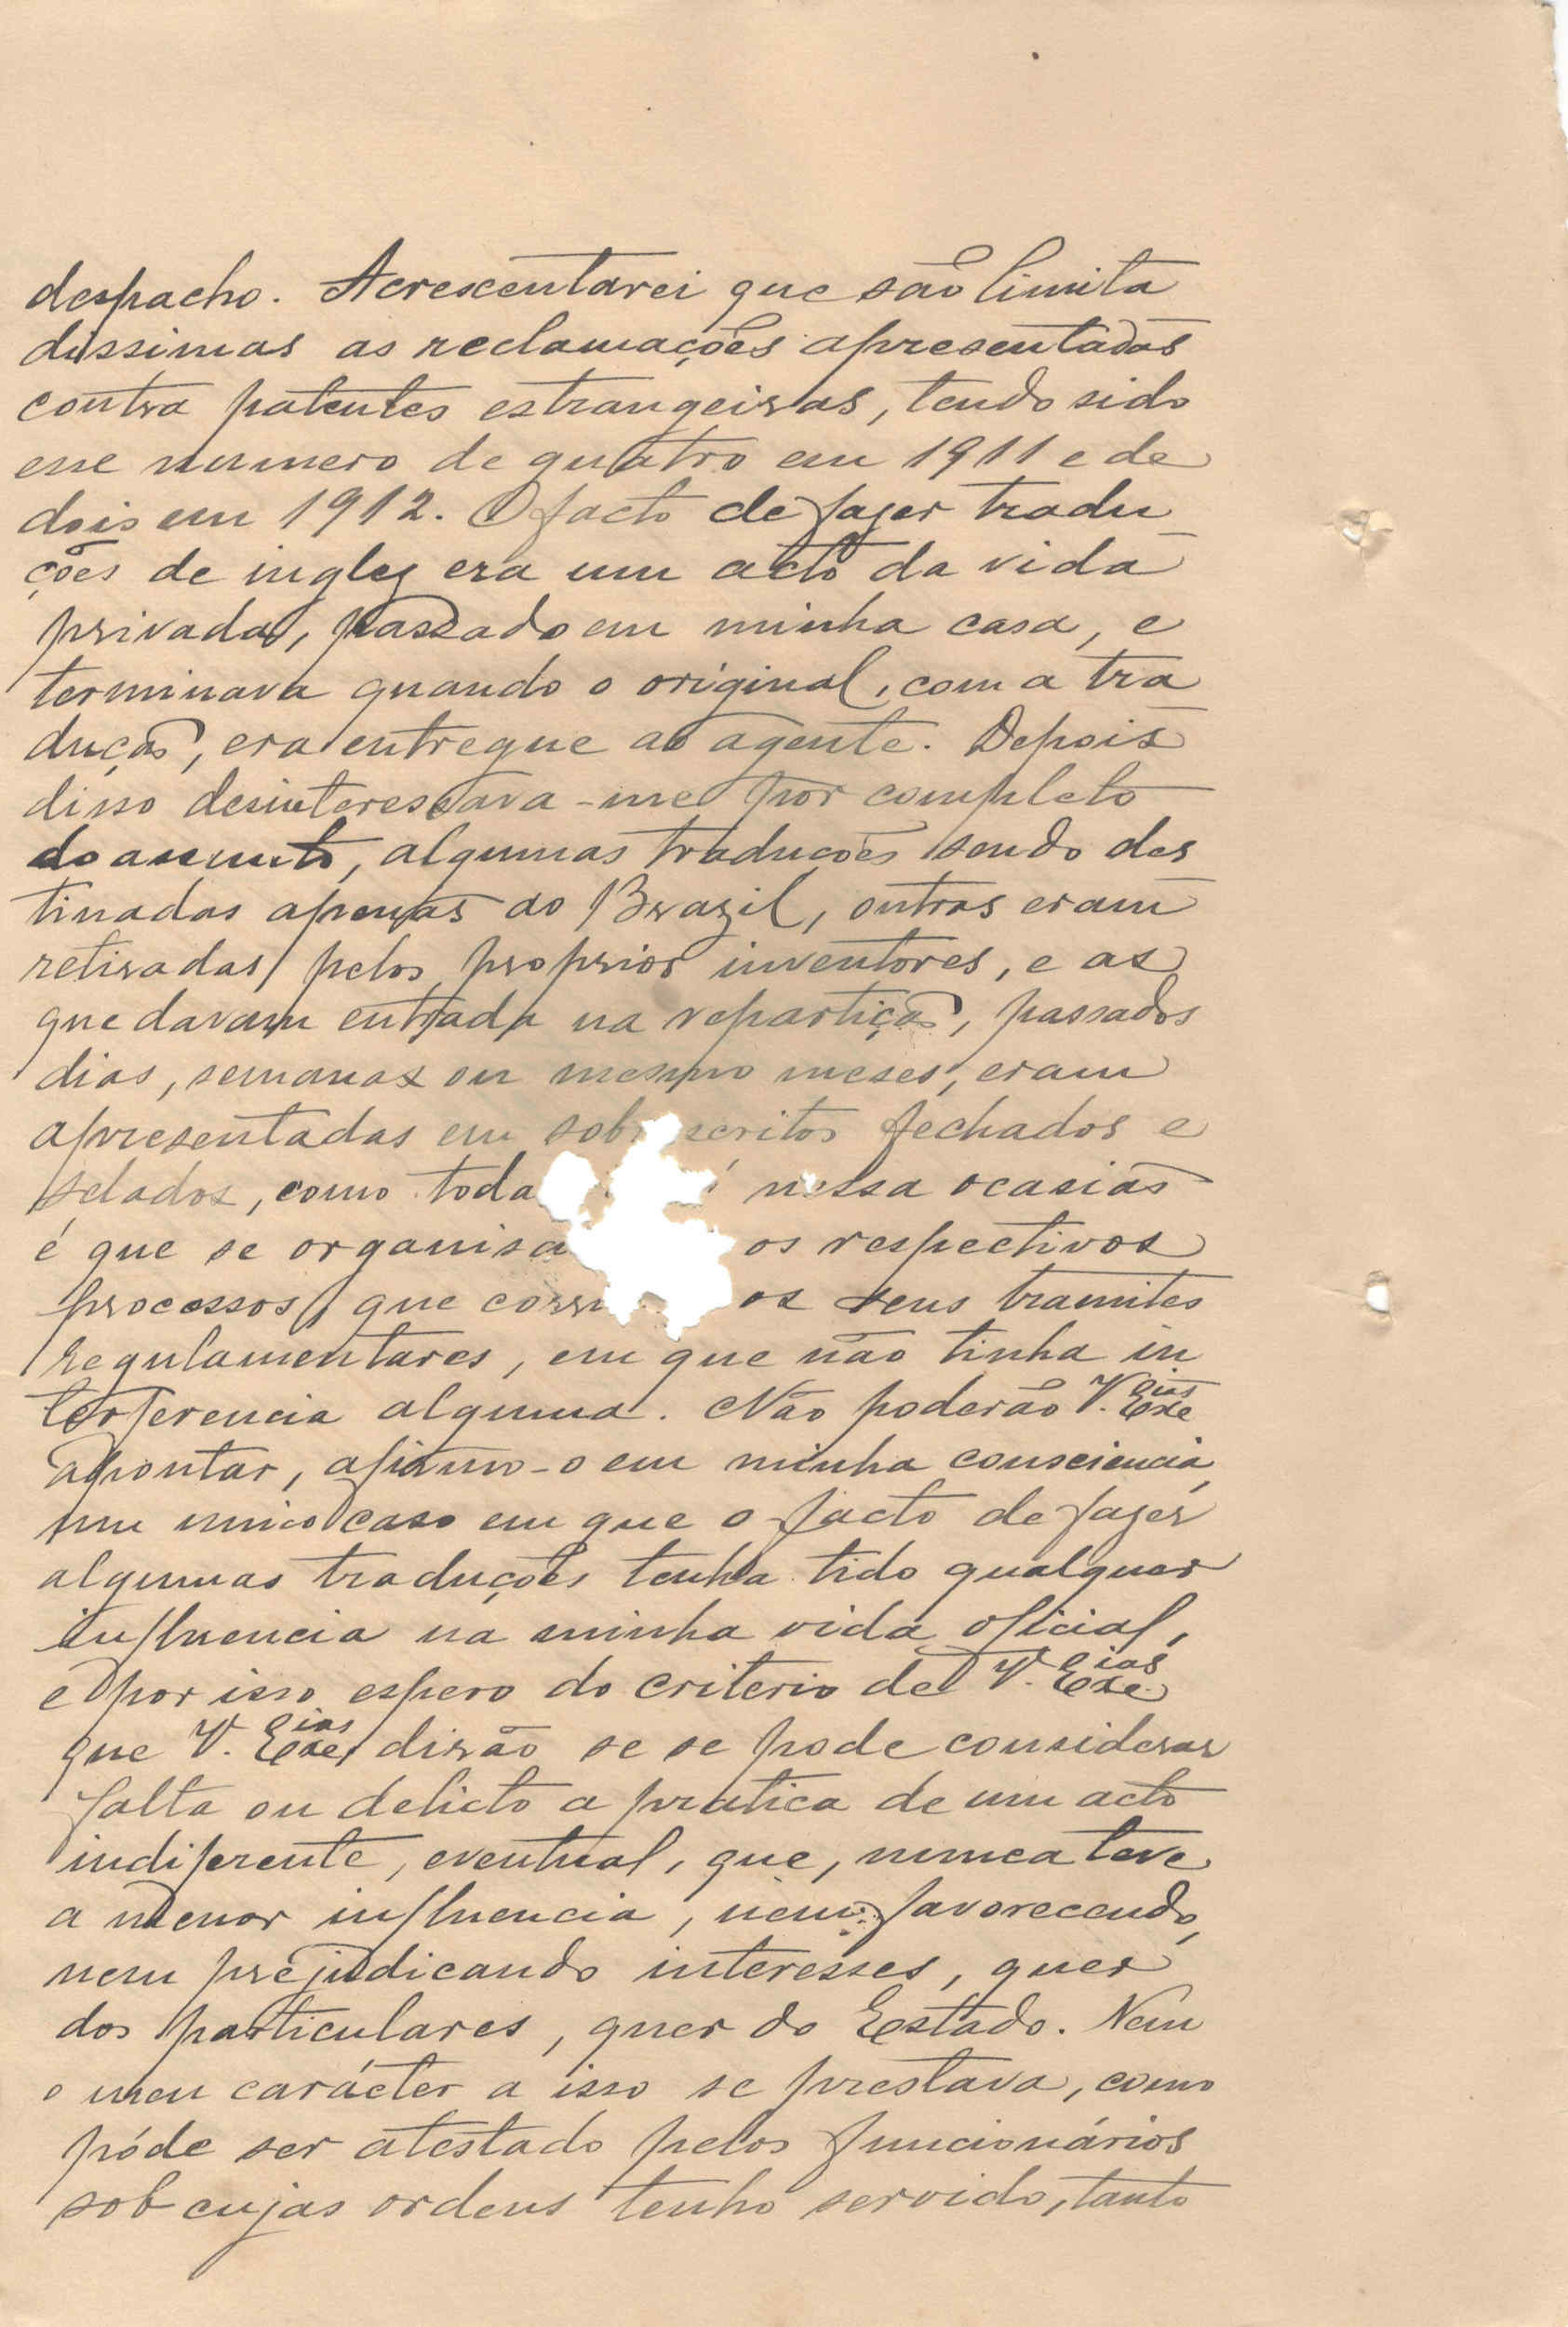 despacho. Acrescentarei que são limita
dissimas as reclamações apresentadas
contra patentes estrangeiras, tendo sido
esse numero de quatro em 1911 e de
dois em 1912. O facto de fazer tradu
ções de inglez era um acto da vida
privada, passado em minha casa, e
terminava quando o original, com a tra
dução, era entregue ao agente. Depois
disso desinteressava-me por completo
do assunto, algumas traduções sendo des
tinadas apenas ao Brazil, outras eram
retiradas pelos proprios inventores, e as
que davam entrada na repartição, passados
dias, semanas ou mesmo meses, eram
apresentadas em sob scritos fechados e
selados, como toda nessa ocasião
é que se organisa os respectivos
processos, que corri os seus tramites
regulamentares, em que não tinha in
terferencia alguma. Não poderão V. Exc.ias
apontar, afirmo-o em minha consciencia,
um unico caso em que o facto de fazer
algumas traduções tenha tido qualquer
influencia na minha vida oficial,
e por isso espero do criterio de V. Exc.ias
que V. Exc.ias dirão se se pode considerar
falta ou delicto a pratica de um acto
indiferente, eventual, que, nunca teve
a menor influencia, nem favorecendo,
nem prejudicando interesses, quer
dos particulares, quer do Estado. Nem
o meu carácter a isso se prestava, como
póde ser atestado pelos funcionários
sob cujas ordens tenho servido, tanto